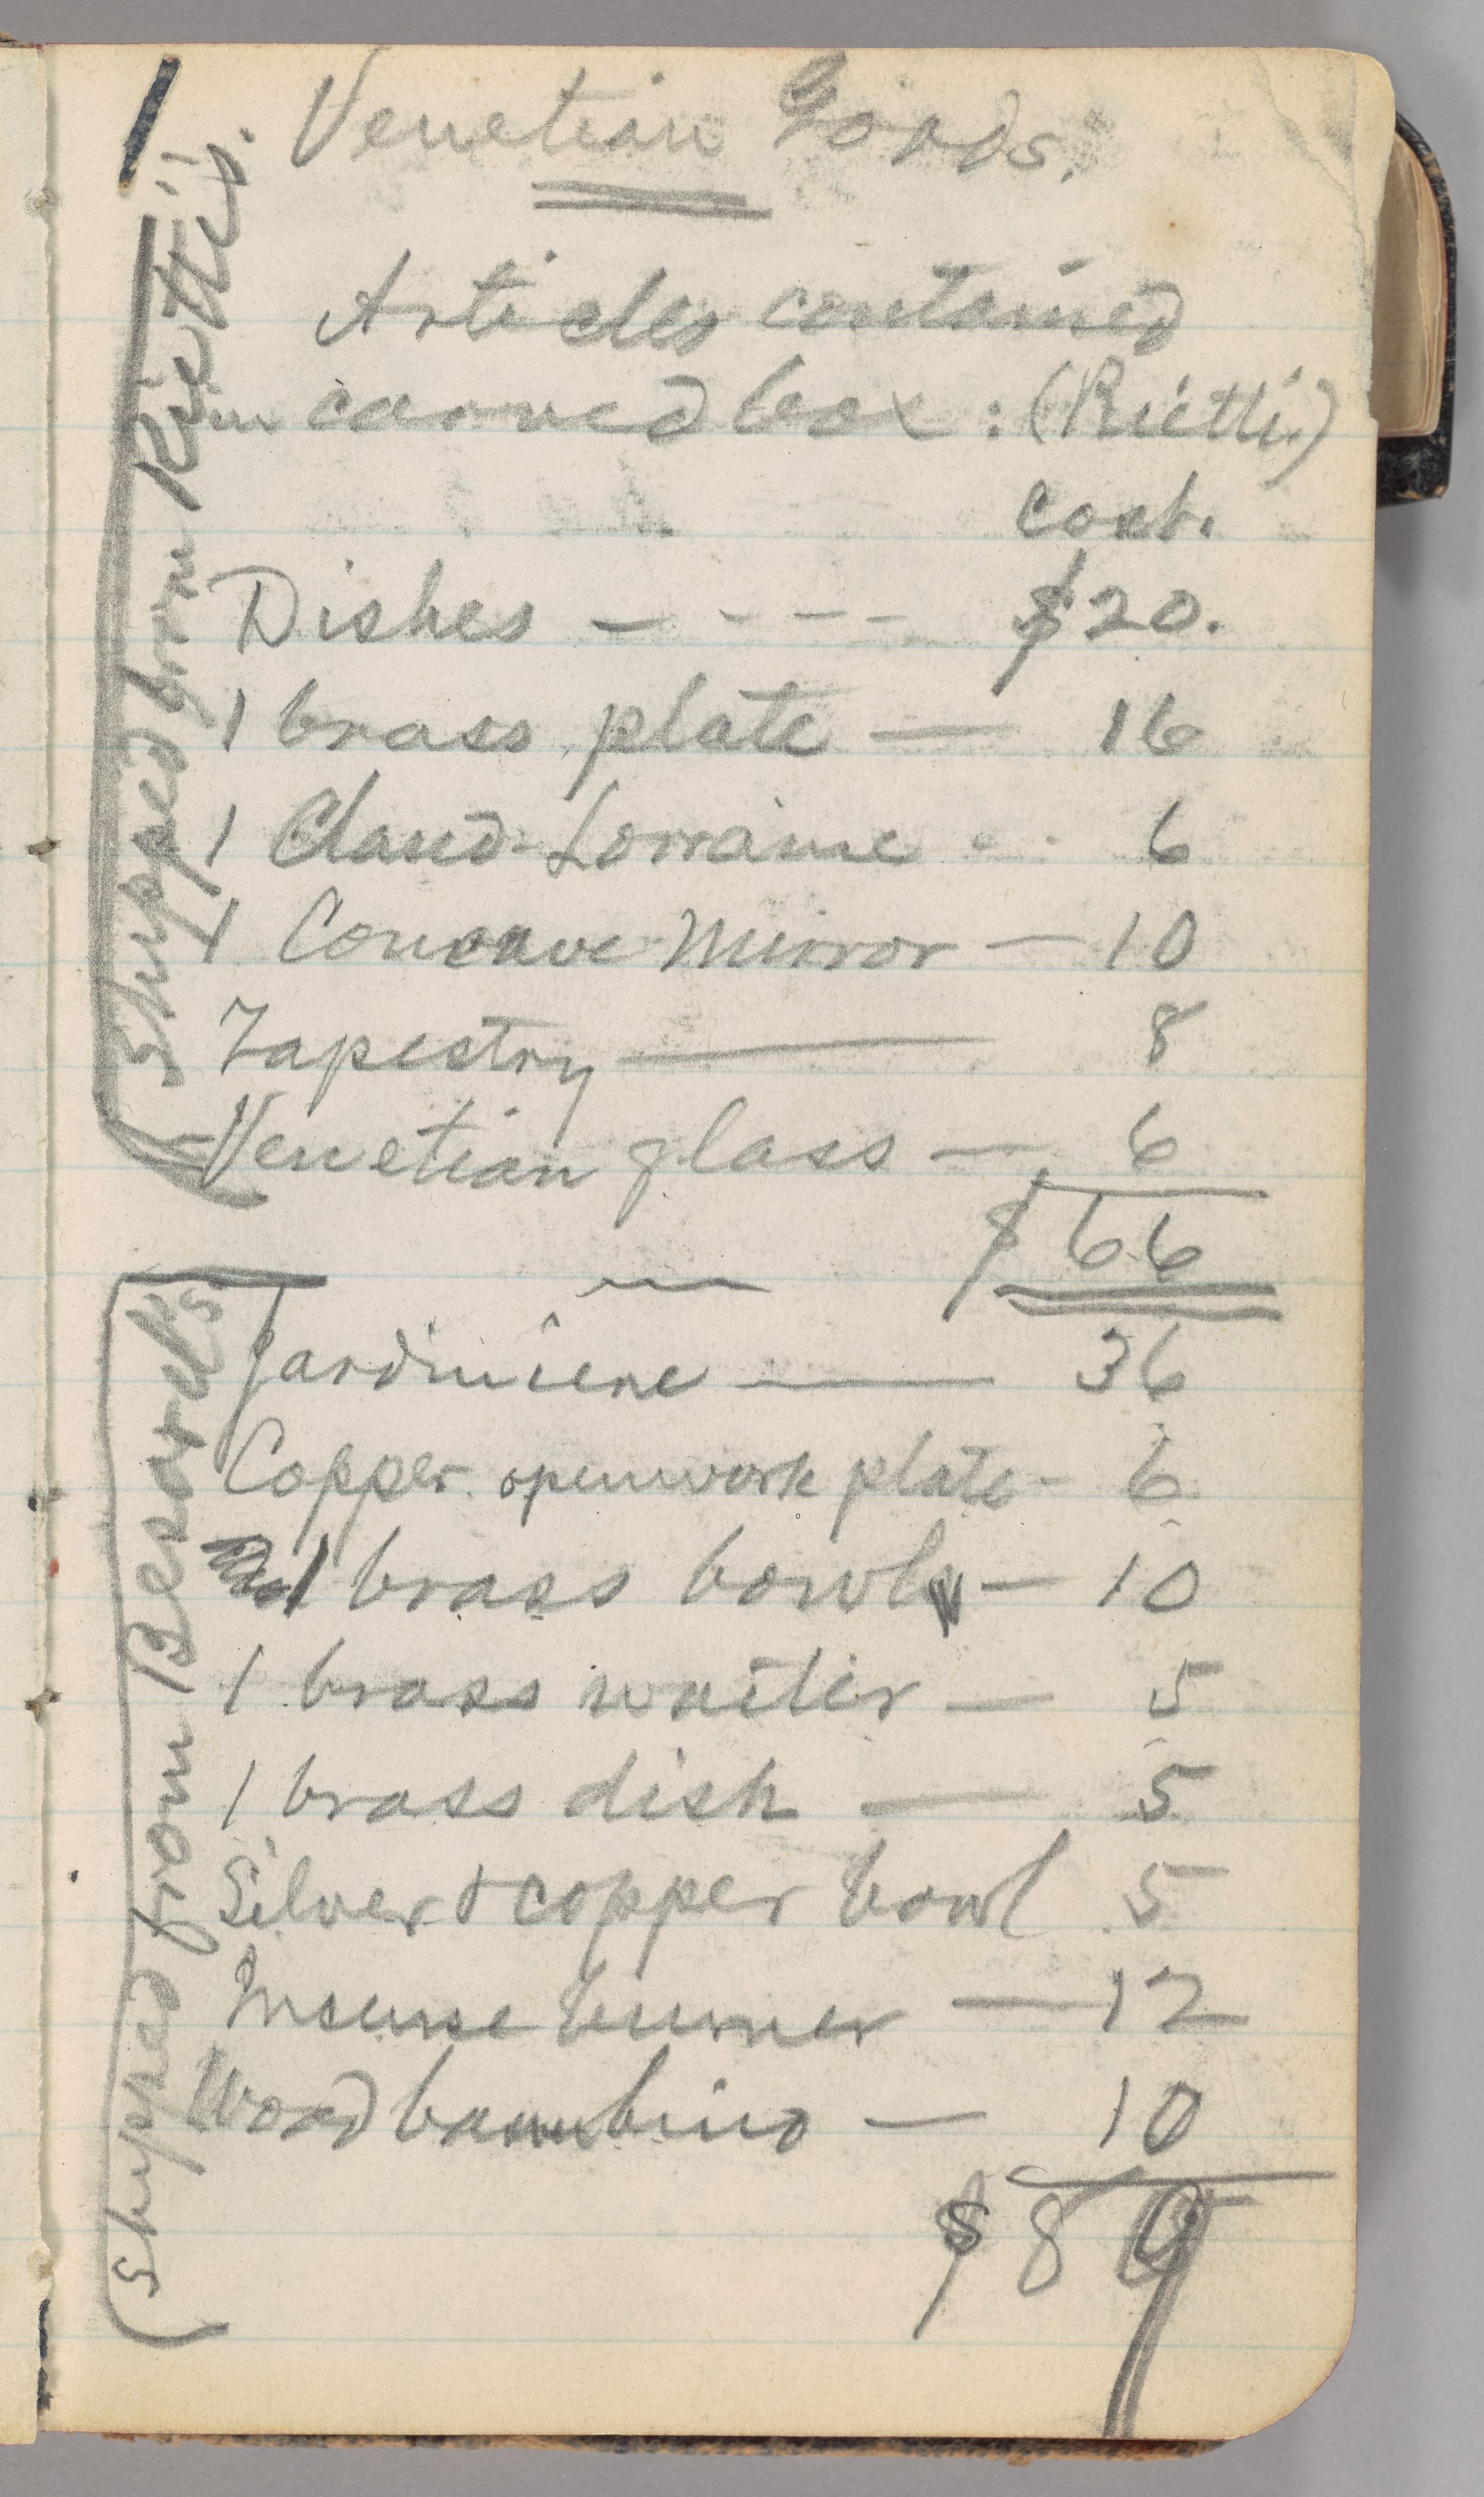 Venetian Goods.
Articles contained
in carved box: (Rietti)
cost.
Dishes — - - - $20.
1 brass plate — 16
1 Claud Lorraine - - 6
1 Concave Mirror — 10
Tapestry — 8
Venetian glass — 6
$66
Jardiniere — 36
Copper openwork plate - 6
1 brass bowl — 10
1 brass waiter — 5
1 brass dish — 5
Silver & copper bowl 5
Insense burner — 12
Wood bambino — 10
$89
Shipped from Rietti's.
Shipped from Besarel's